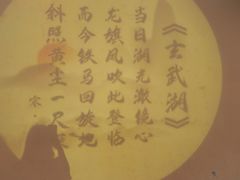 《玄武湖》
当日湖光潋滟心
龙旗风吹此登临
而今铁马回旋地
斜照黄尘一尺
宋